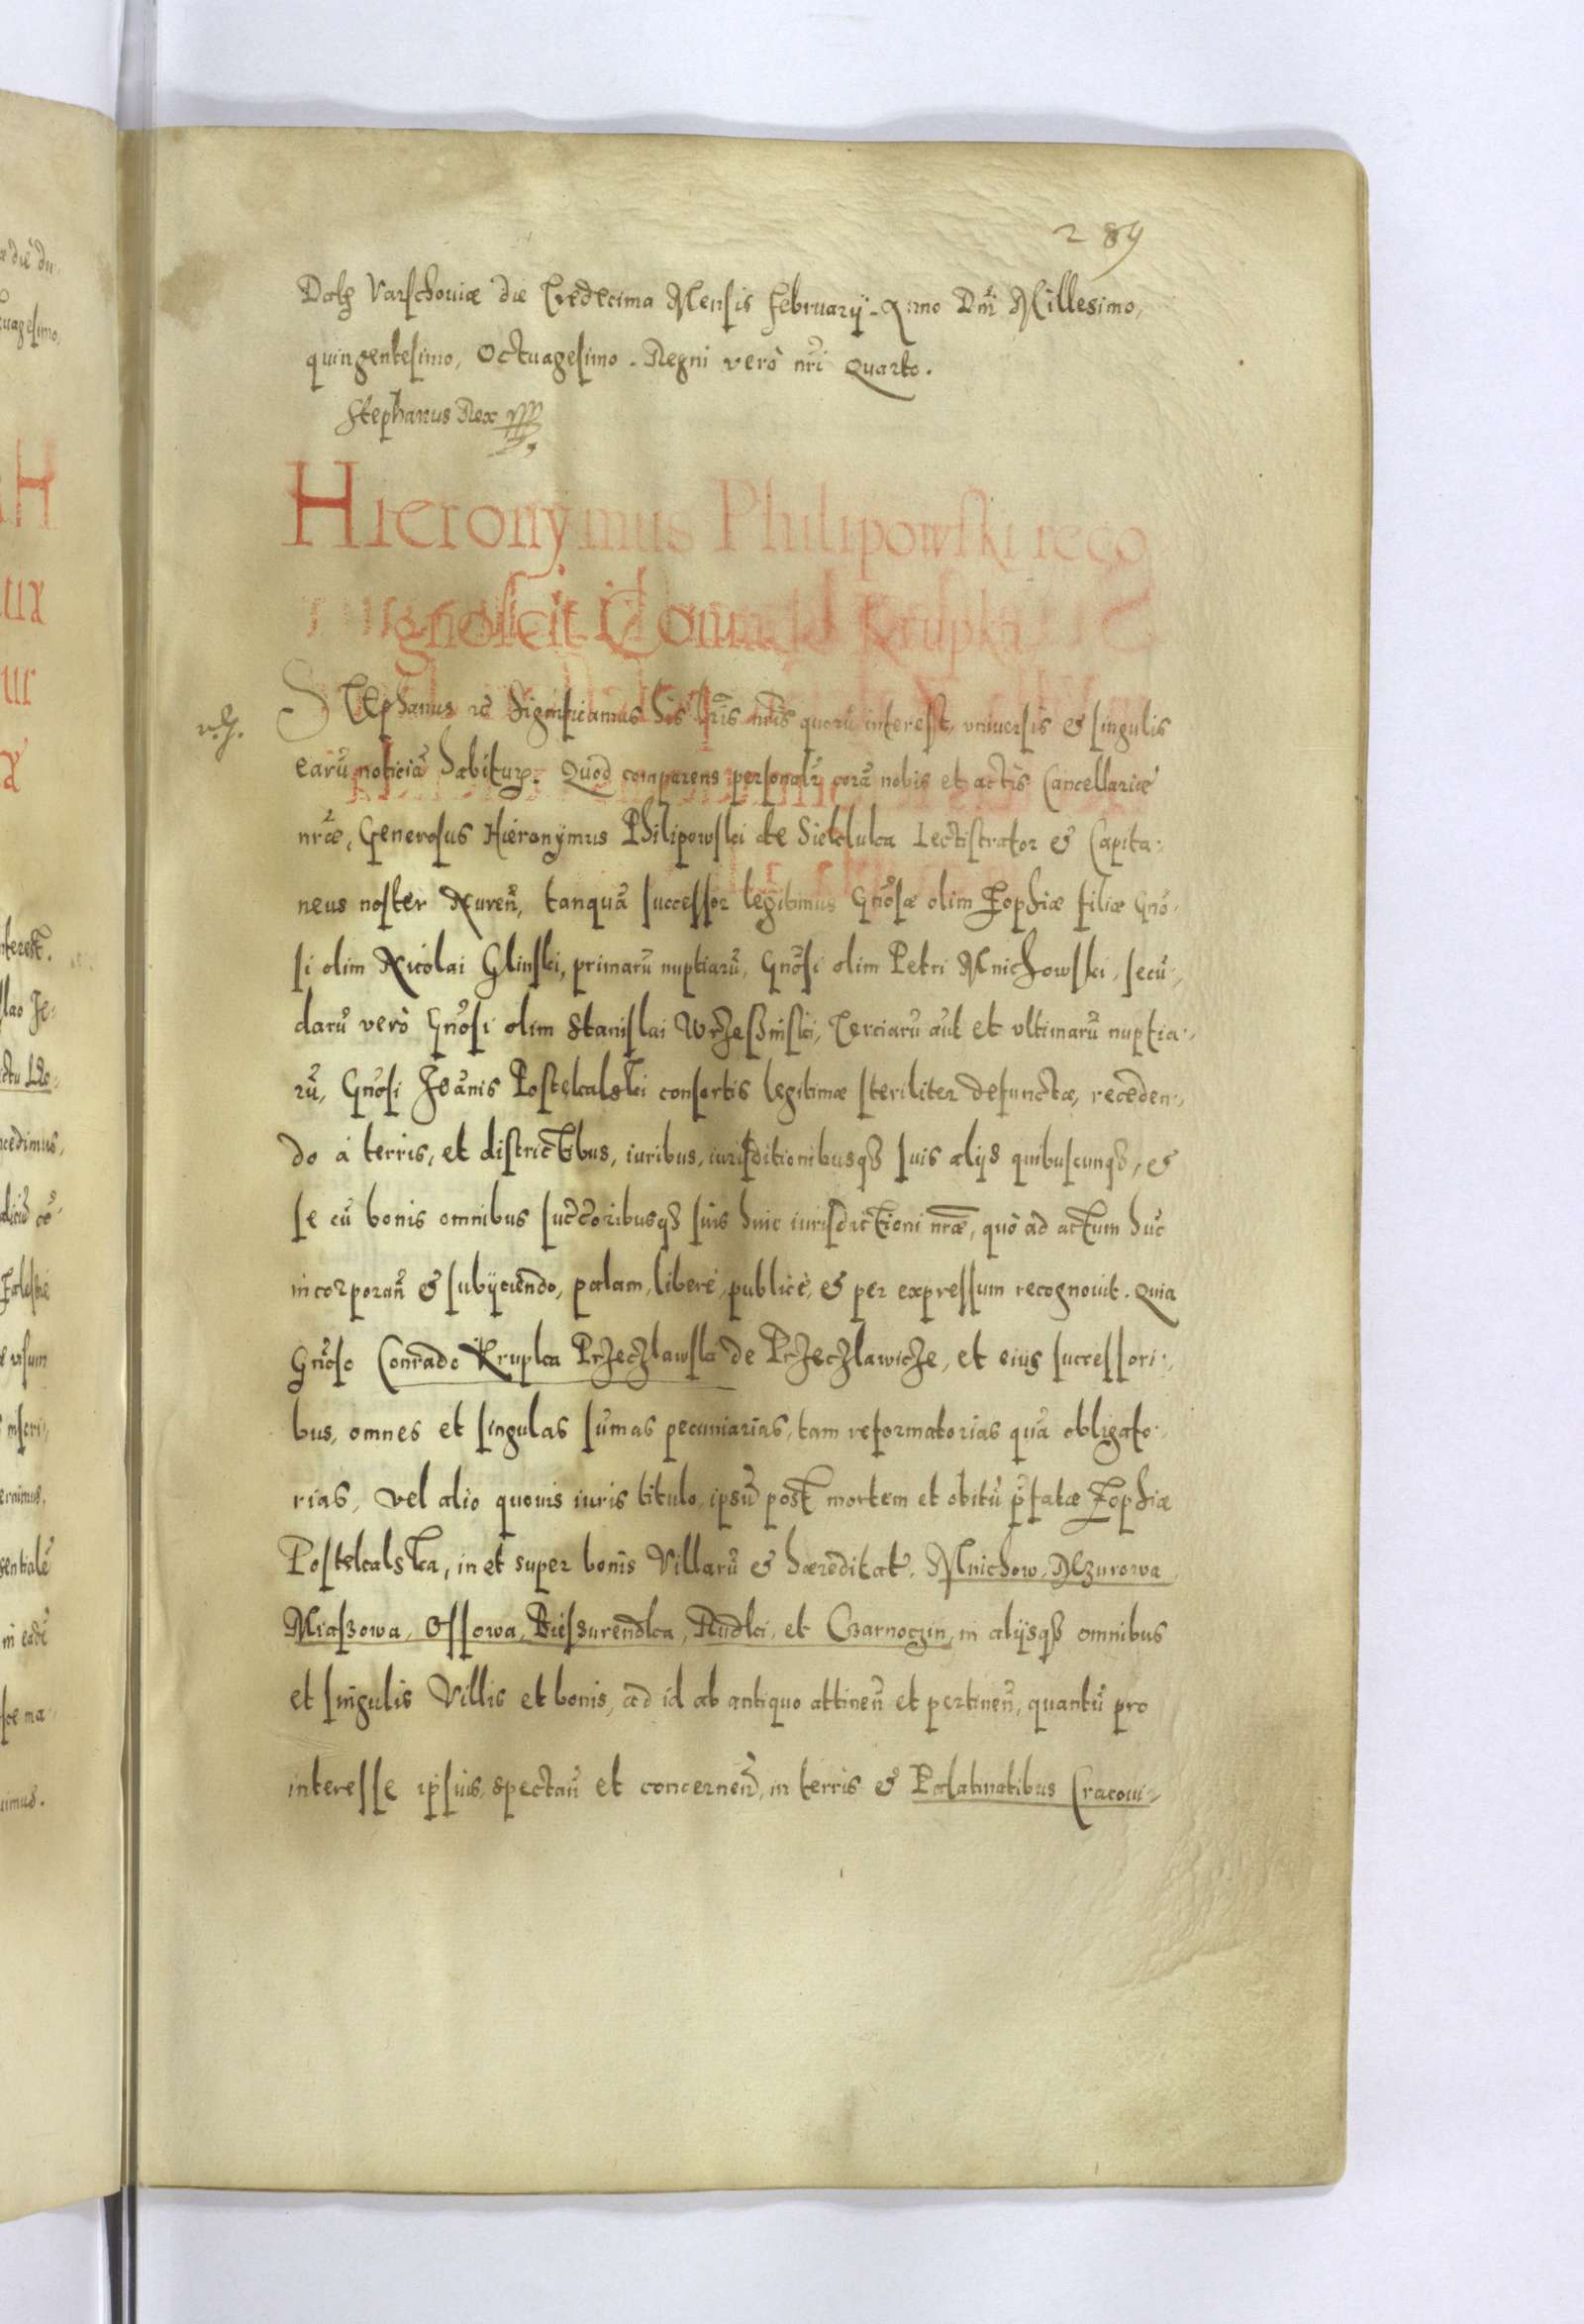 289
Dat Varschoviæ die Tredecima Mensis Februarij. Anno Dnī Millesimo,
quingentesimo, Octuagesimo. Regni verò nri Quarto.
Stephanus Rex
Hieronymus Philipowski reco
gnoscit Conrado Krupka
Stephanus rc Significamus his lris nris quorū interest, vniuersis & singulis
earū noticiā habituris. Quod comparens personalr corā nobis et actis Cancellariæ
nræ, Generosus Hieronymus Philipowski de Siekluka Lectistrator & Capita-
neus noster Nuren, tanquā successor legitimus Gnosæ olim Zophiæ filiæ Gno-
si olim Nicolai Glinski, primarū nuptiarū, Gnosi olim Petri Mnichowski, secū-
darū verò Gnosi olim Stanislai Wrzeßniski, Terciarū aūt et vltimarū nuptia-
rū, Gnosi Joānis Postekalski consortis legitimæ steriliter defunctæ, receden-
do á terris, et districtibus, iuribus, iurisditionibusqȝ suis alijs quibuscunqȝ, &
se cū bonis omnibus succoribusqȝ suis huic iurisdictioni nræ, quò ad actum huc
incorporan & subijciendo, palam, liberé, publicè, & per expressum recognouit. Quia
Gnoso Conrado Krupka Przeczlawska de Przeczlawicze, et eius successori-
bus, omnes et singulas sūmas pecuniarias, tam reformatorias quā obligato-
rias, vel alio quouis iuris titulo, ipsū post mortem et obitū pfatæ Zophiæ
Postekalska, in et super bonis Villarū & hæreditat. Mnichow, Rzurowa
Miaßowa, Ossowa, Bießurendka, Rudki, et Czarnoczin, in alijsqȝ omnibus
et singulis Villis et bonis, ad id ab antiquo attinen et pertinen, quantū pro
interesse ipsius, spectan et concernen, in terris & Palatinatibus Cracoui-